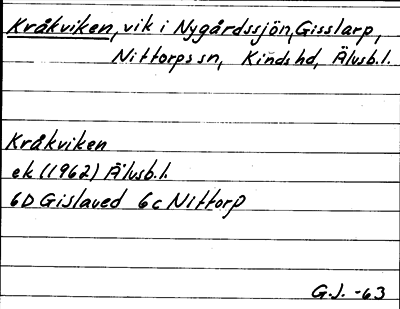 Kråkviken, vik i Nygårdssjön, Gisslarp,
Nittorps sn, Kinds hd, Älvsb.l.
Kråkviken
ek (1962) Älvsb.l.
6D Gislaved 6c Nittorp
G.J. -63